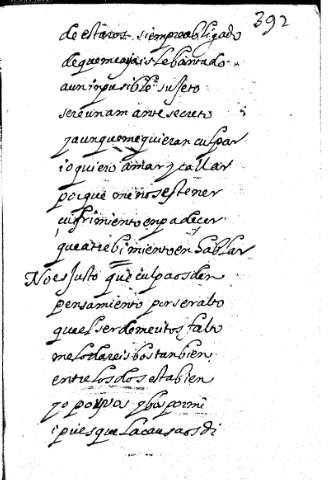 392
de estaros siempre obligado
de que me ayais lebantado
a un inpusible sujeto
sere un amante secreto
y aunque me quieran culpar
io quiero amar y callar
porque menos es tener
sufrimiento en padecer
que atrebimiento en hablar
No es Justo que culpa os den
pensamiento por ser alto
que el ser de meritos falto
me lo dareis bos tanbien
entre los dos esta bien
yo por bos y bos por mi
i pues que la causa os di